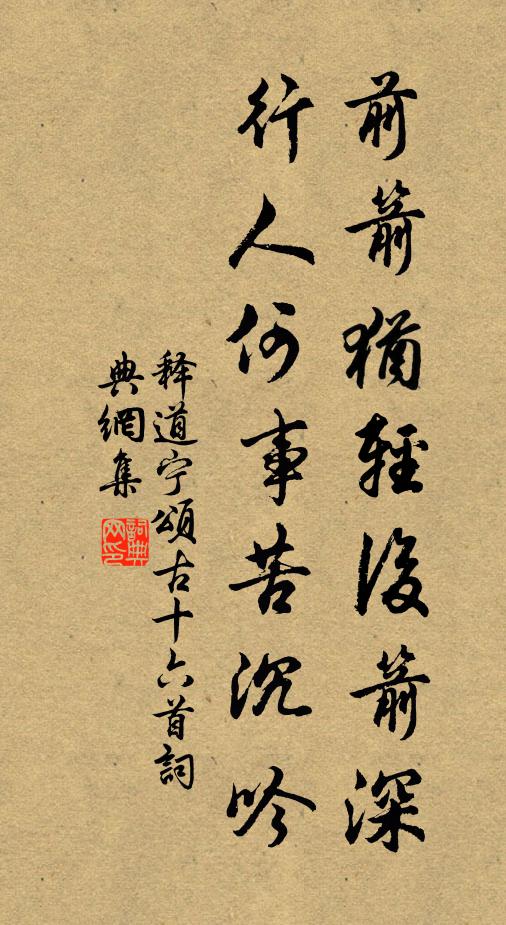 前箭猶輕後箭深
行人何事苦沉吟
释道宁頌古十六首詞
典網集
詞典網印